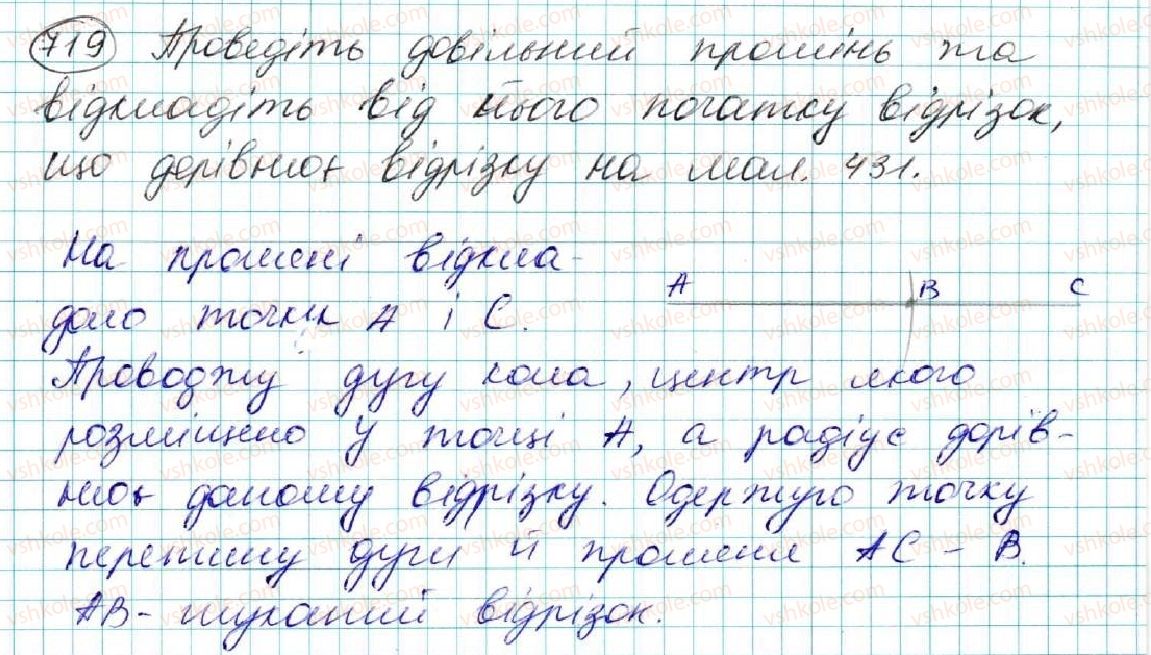 719 Проведіть довільний промінь та
відкладіть від його початку відрізок,
що дорівнює відрізку на мал. 431.
На промені відкла-
дало точки А і С.
A B C
Проводжу дугу кола, центр якого
розміщено у точці А, а радіус дорів-
нює даному відрізку. Одержую точку
перетину дуги й променя АС – В.
АВ – шуканий відрізок.